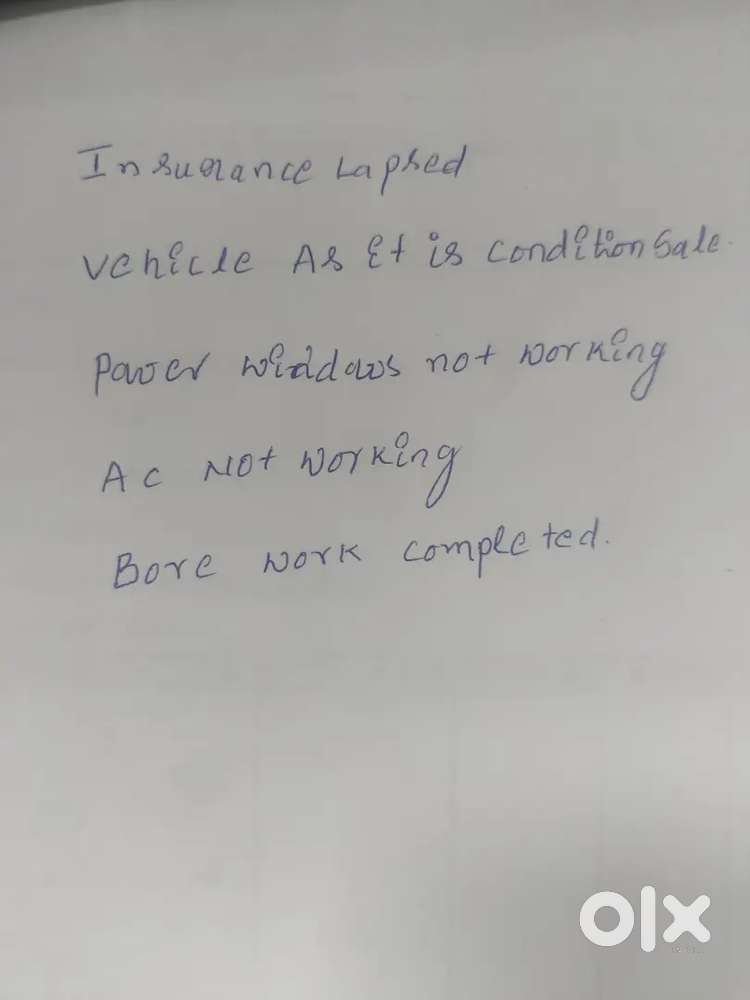 Insurance Lapsed
Vehicle As it is condition Sale.
Power windows not working
AC Not working
Bore work completed.
olx